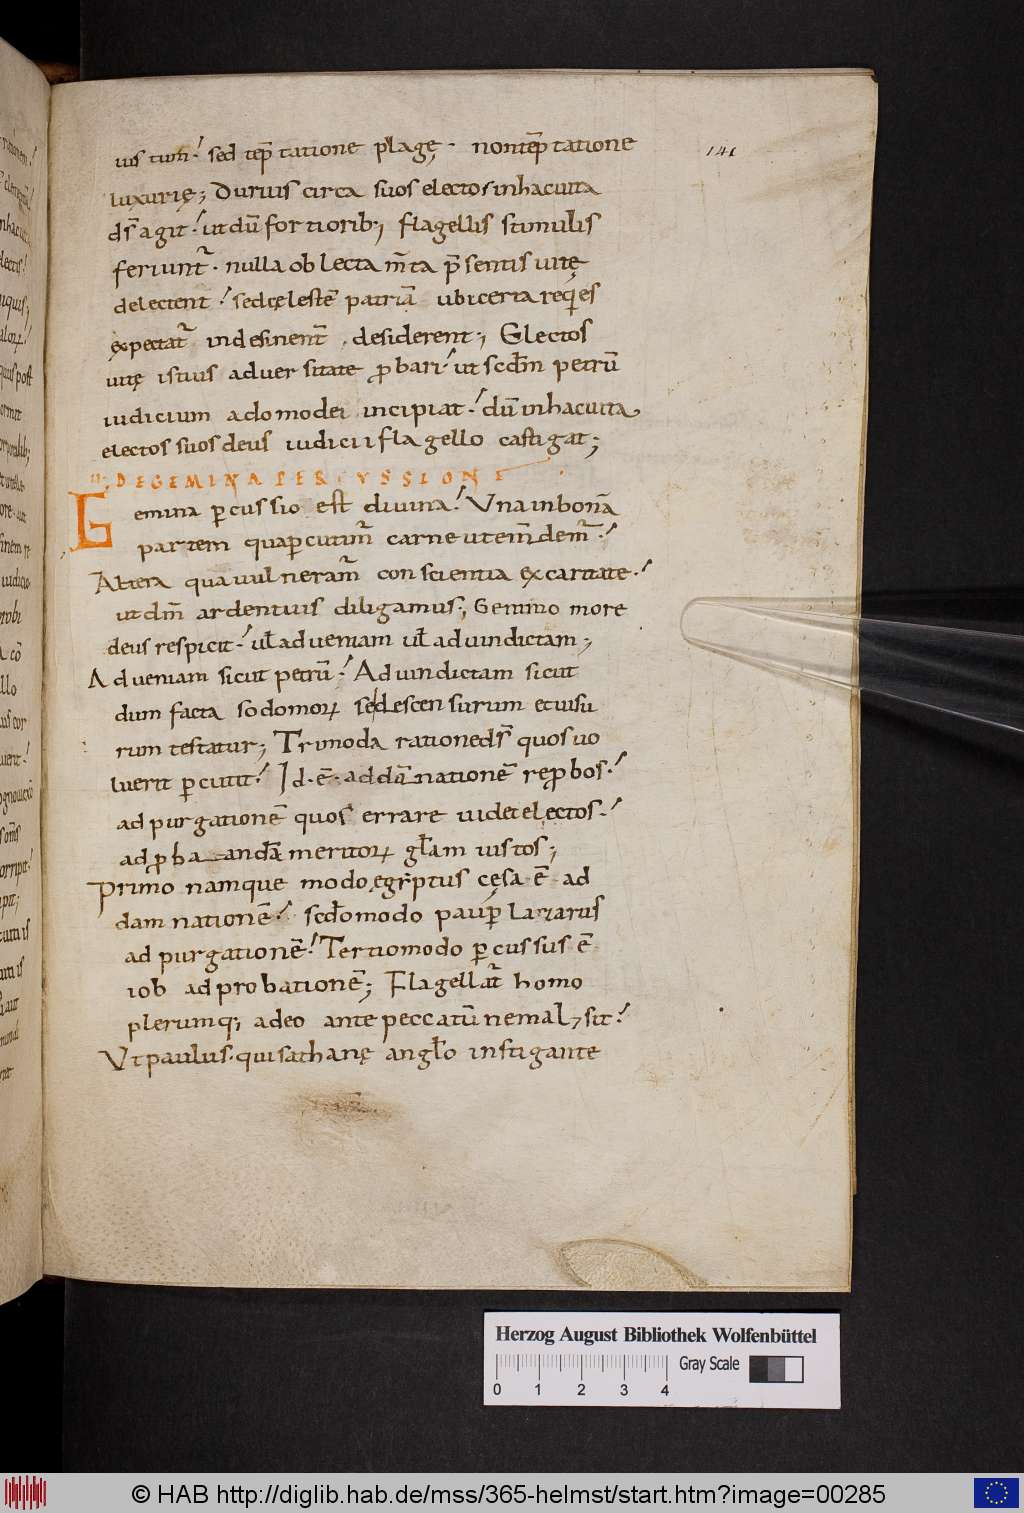 141
uis tum̄! sed tēptatione plagę. nontēptatione
luxurię; Durius circa suos electos inhacuita
d̄s agit! ut dū fortiorib; flagellis stimulis
feriunt̄. nulla oblectam̄ta p̄sentis uitę
delectent! sedcęlestē patriā ubi certa requies
expectat̄ indesinent̄ desiderent; Electos
uitę istius aduersitate probari! ut scd̄m petrū
iudicium adomodei incipiat! dū inhacuita
electos suos deus iudicii flagello castigat;
DEGEMINA PERCUSSIONE
Gemina percussio est diuina! Una inbonā
partem qua percutimur̄ carne ut emendemur̄!
Altera qua uulneramur̄ conscientia excaritate!
ut dm̄ ardentius diligamus; Gemino more
deus respicit! ul̄ adueniam ul̄ aduindictam;
Adueniam sicut petrū! Aduindictam sicut
dum facta sodomorꝝ se descensurum et uisu
rum testatur; Trimoda ratione d̄s quos uo
luerit percutit! Id. ē. addānationē reprobos!
ad purgationē quos errare uidet electos!
ad probandā meritorꝝ gl̄am iustos;
Primo namque modo ęgyptus cęsa ē ad
damnationē! Scd̄o modo pauper lazarus
ad purgationē! Tertio modo percussus ē
iob ad probationē; Flagellat̄ homo
plerumq; adeo ante peccatū nemal; sit!
Ut paulus. qui sathanę angl̄o instigante
Herzog August Bibliothek Wolfenbüttel
Gray Scale
0 1 2 3 4
© HAB http://diglib.hab.de/mss/365-helmst/start.htm?image=00285